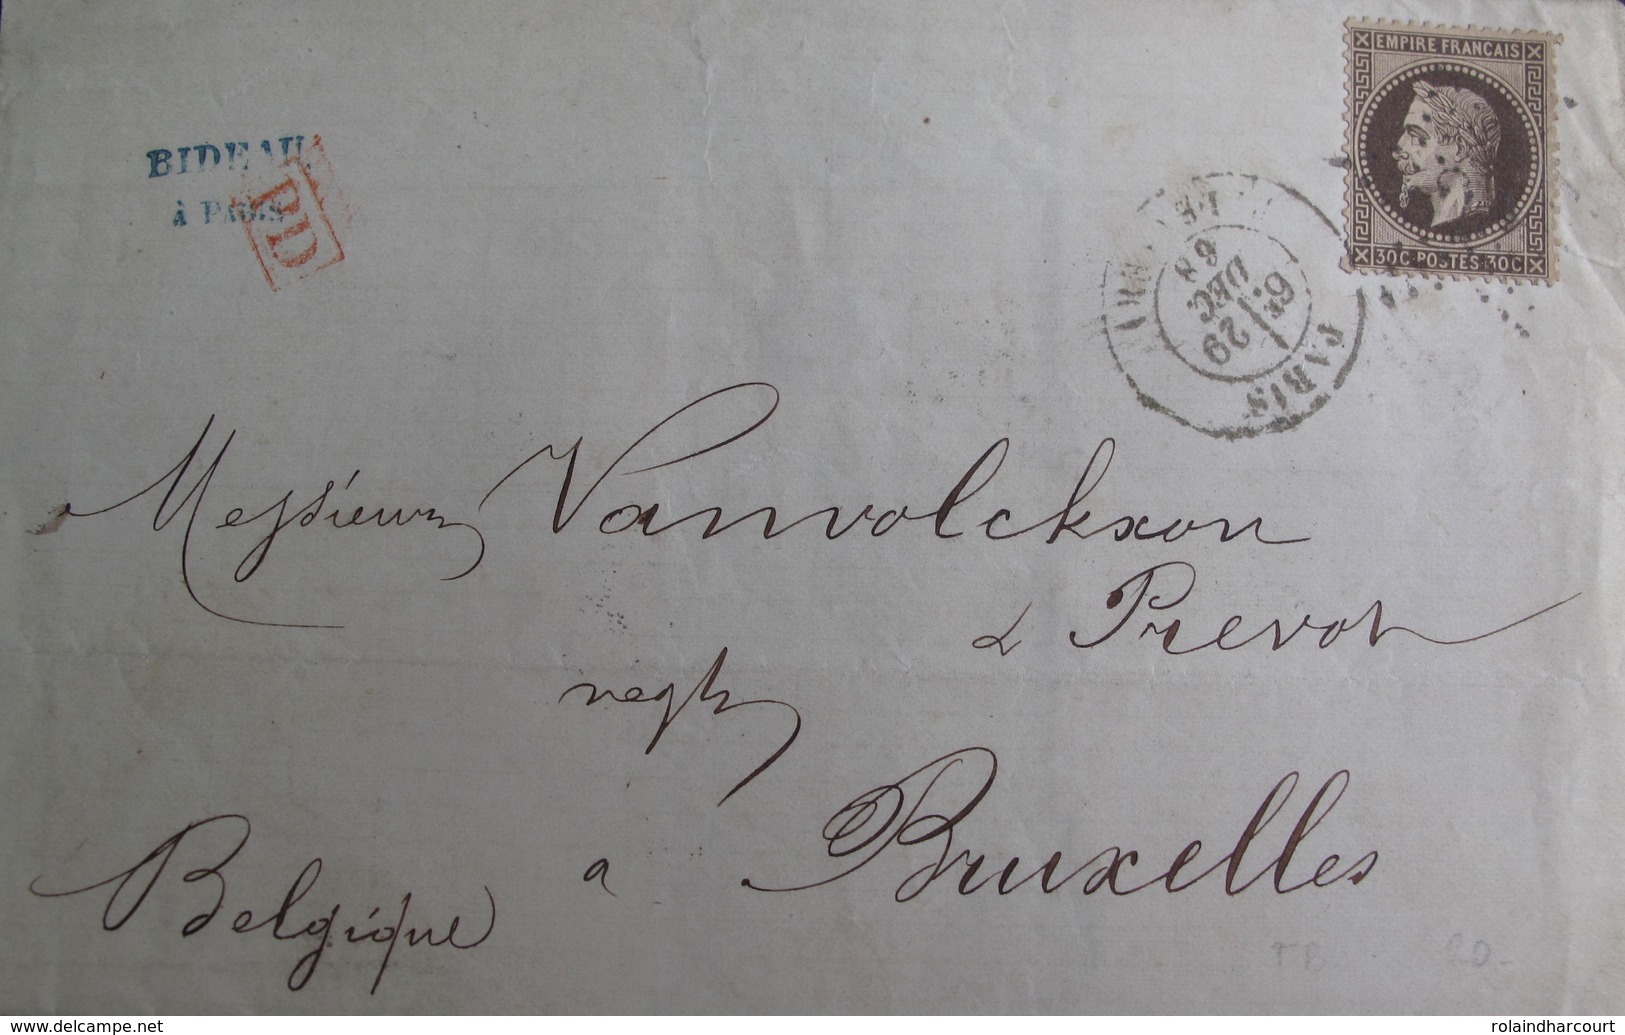 BIDEAU
à PARIS
PD
EMPIRE FRANÇAIS
30C POSTES 30C
PARIS
6E
29
DEC
68
Messieurs Vanvolckxon
& Prevot
negts
a Bruxelles
Belgique
TB
www.delcampe.net
rolaindharcourt